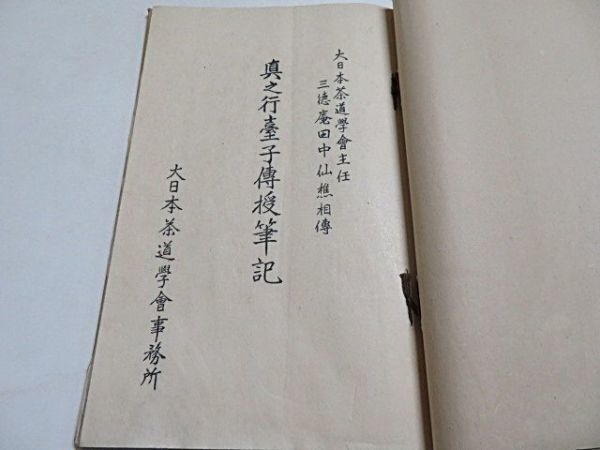 大日本茶道學會主任
三德庵田中仙樵相傳
真之行臺子傳授筆記
大日本茶道學會事務所